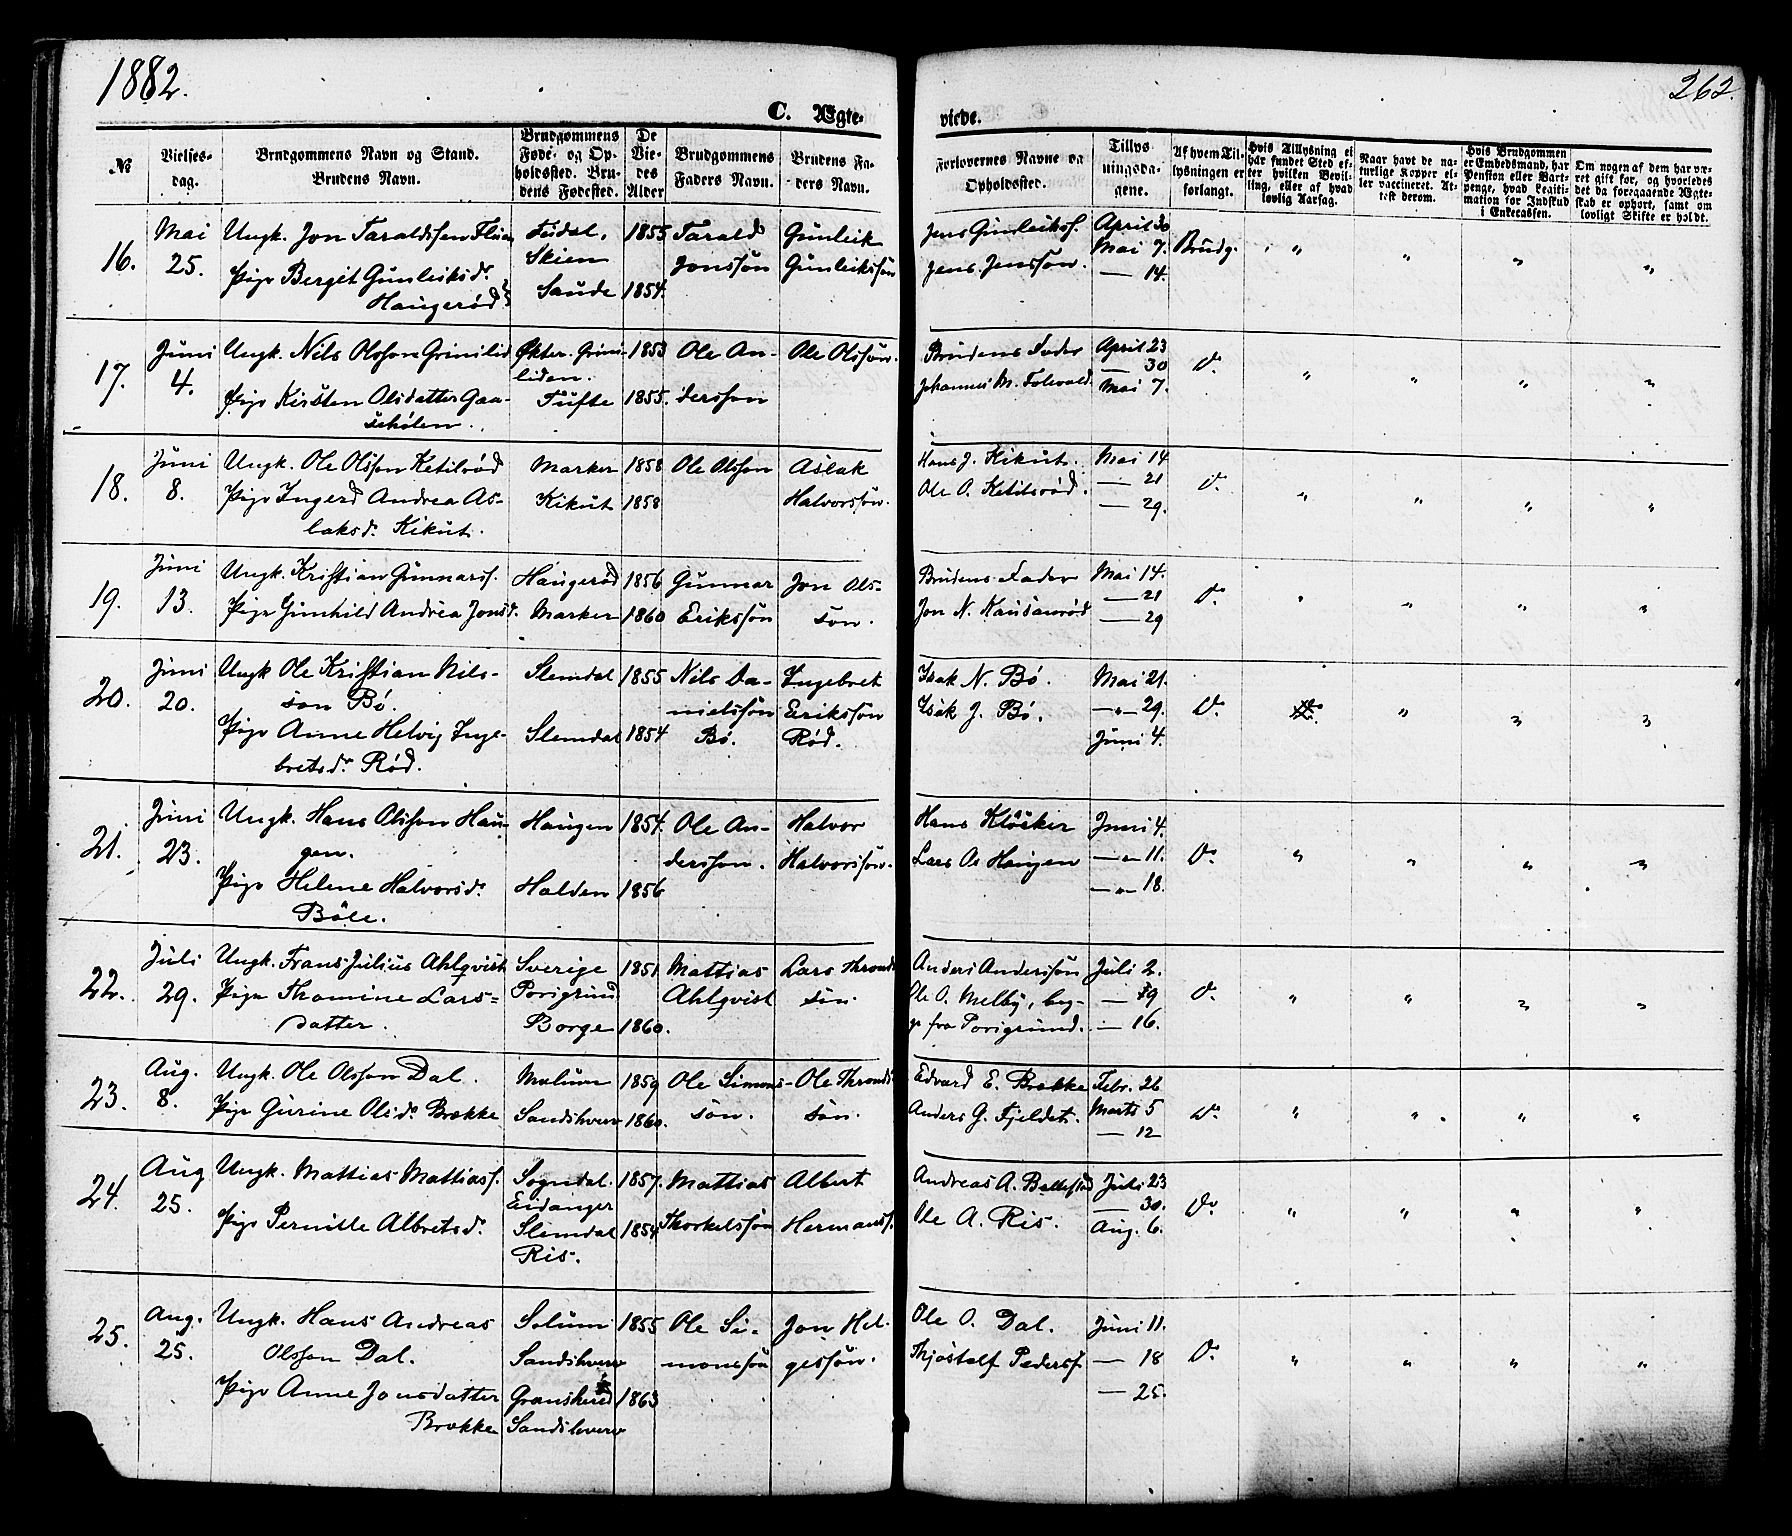 1882.
262.
C. Ægte-
viede.
№
Vielses-
dag.
Brudgommens Navn og Stand.
Brudens Navn.
Brudgommens
Føde- og Op-
holdssted. Bru-
dens Fødested.
De
Vie-
des
Alder
Brudgommens
Faders Navn.
Brudens Fa-
ders Navn.
Forlovernes Navne og
Opholdssted.
Tillys
ningsda-
gene.
Af hvem Til-
lysningen er
forlangt.
Hvis Tillysning ei
har fundet Sted ef-
ter hvilken Bevil-
ling, eller af hvad
lovlig Aarsag.
Naar havt de na-
turlige Kopper el-
ler vaccineret. At-
test derom.
Hvis Brudgommen
er Embedsmand, har
Pension eller Vart-
penge, hvad Legiti-
mation for Indskud
i Enkecassen.
Om nogen af dem har væ-
ret gift før, og hvorledes
det da foregaaende Ægte-
skab er ophørt, samt om
lovligt Skifte er holdt.
16.
Mai
25.
Ungk. Jon Taraldssøn
Pige Bergit Gunleiksd.
Haugerød
Skien
Saude
1855
1854.
Tarald
Jonssøn
Gunleik
Gunleikssøn
Jens Gunleikss.
Jens Jenssøn.
April 30
Mai 7.
— 14.
Brudg.
17.
Juni
4.
Ungk. Nils Olsson Grinilid
Pige Kirsten Olsdatter Gaa-
scholen.
Økter. Grini-
liden.
Tufte
1853
1855.
Ole An-
dersson
Ole Olssøn.
Brudens Fader
Johannes M.
April 23
— 30
Mai 7.
Do.
18.
Juni
8.
Ungk. Ole Olsson Ketilsrød
Pige Ingerd Andrea As-
laksd. Kikut.
Marker
Kikut
1858
1858
Ole Olsson
Aslak
Halvorssøn.
Hans J. Kikut.
Ole O. Ketilsrød.
Mai 14
— 21
— 29.
Do.
19.
Juni
13.
Ungk. Kristian Gunnarss.
Pige Gunhild Andrea Jonsd.
Haugerød
Marker
1856
1860
Gunnar
Erikssøn
Jon Ols-
søn.
Brudens Fader
Jon N.
Mai 14.
— 21
— 29
Do.
20.
Juni
20.
Ungk Ole Kristian Nils-
son Bø.
Pige Anne Helvig Inge-
bretsd. Rød.
Slemdal
Slemdal
1855
1854
Nils Da-
nielssøn
Bø.
Ingebret
Erikssøn
Rød.
Isak N. Bø.
Isak J. Bø.
Mai 21.
—„— 29.
Juni 4.
Do.
21.
Juni
23.
Ungk. Hans Olsson Hau-
gen.
Pige Helene Halvorsd.
Böle.
Haugen
Holden
1854.
1856
Ole An-
dersson.
Halvor
Halvorssøn.
Hans Klöcker
Lars Os Haugen
Juni 4.
—„— 11.
—„— 18.
Do.
22.
Juli
29.
Ungk. Frans Julius Ahlqvist
Pige Thomine Lars-
datter.
Sverige
Porsgrund
Borge
1851.
1860.
Mattias
Ahlqvist
Lars Thronds
søn.
Anders Anderssøn
Ole O. Melby, beg-
ge fra Porsgrund.
Juli 2.
— 9
— 16.
Do.
23.
Aug.
8.
Ungk. Ole Olsson Dal.
Pige Gurine Olsd. Brække
Melum
Sandsherv
1859
1860.
Ole Simons-
søn.
Ole Thronds
søn.
Edvard E. Brække
Anders G. Fjeldet.
Febr. 26
Marts 5
— 12
Do.
24.
Aug
25.
Ungk. Mattias Mattiass.
Pige Pernille Albretsd.
Sogndal.
Eidanger
Slemdal
Ris.
1857.
1854
Mattias
Thorkelssøn
Albert
Hermanss.
Andreas A.
Ole A. Ris.
Juli 23
— 30.
Aug. 6.
Do.
25.
Aug.
25.
Ungk. Hans Andreas
Olsson Dal.
Pige Anne Jonsdatter
Brække
Solum
Sandsherv
Gransherred
Sandsherv
1855
1863
Ole Si-
monssøn
Jon Hel-
gessøn.
Ole O. Dal.
Thjostolf Pederss.
Juni 11.
— 18
— 25.
Do.